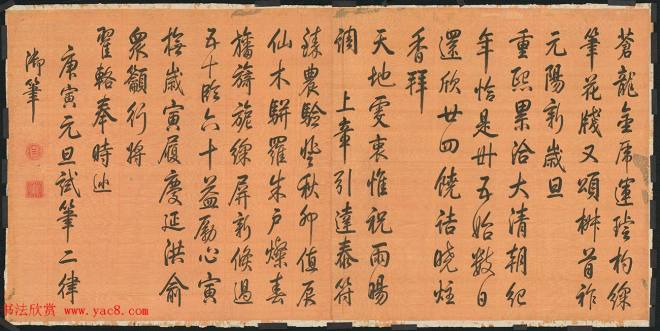 蒼龍金虎運璿杓綵
筆花牋又頌椒首祚
元陽新歲旦
重熙累洽大清朝紀
年恰是卅五始數日
還欣廿四饒詰曉炷
香拜
天地虔衷惟祝雨暘
調 上章引達泰符
臻農驗登秋卯值辰
仙木駢羅朱戶燦春
旛旖旎綵屏新倏過
五十臨六十益勵心寅
撫歲寅履慶延洪俞
衆籲行將
翟輅奉時巡
庚寅元旦試筆二律
御筆
书法欣赏
www.yac8.com